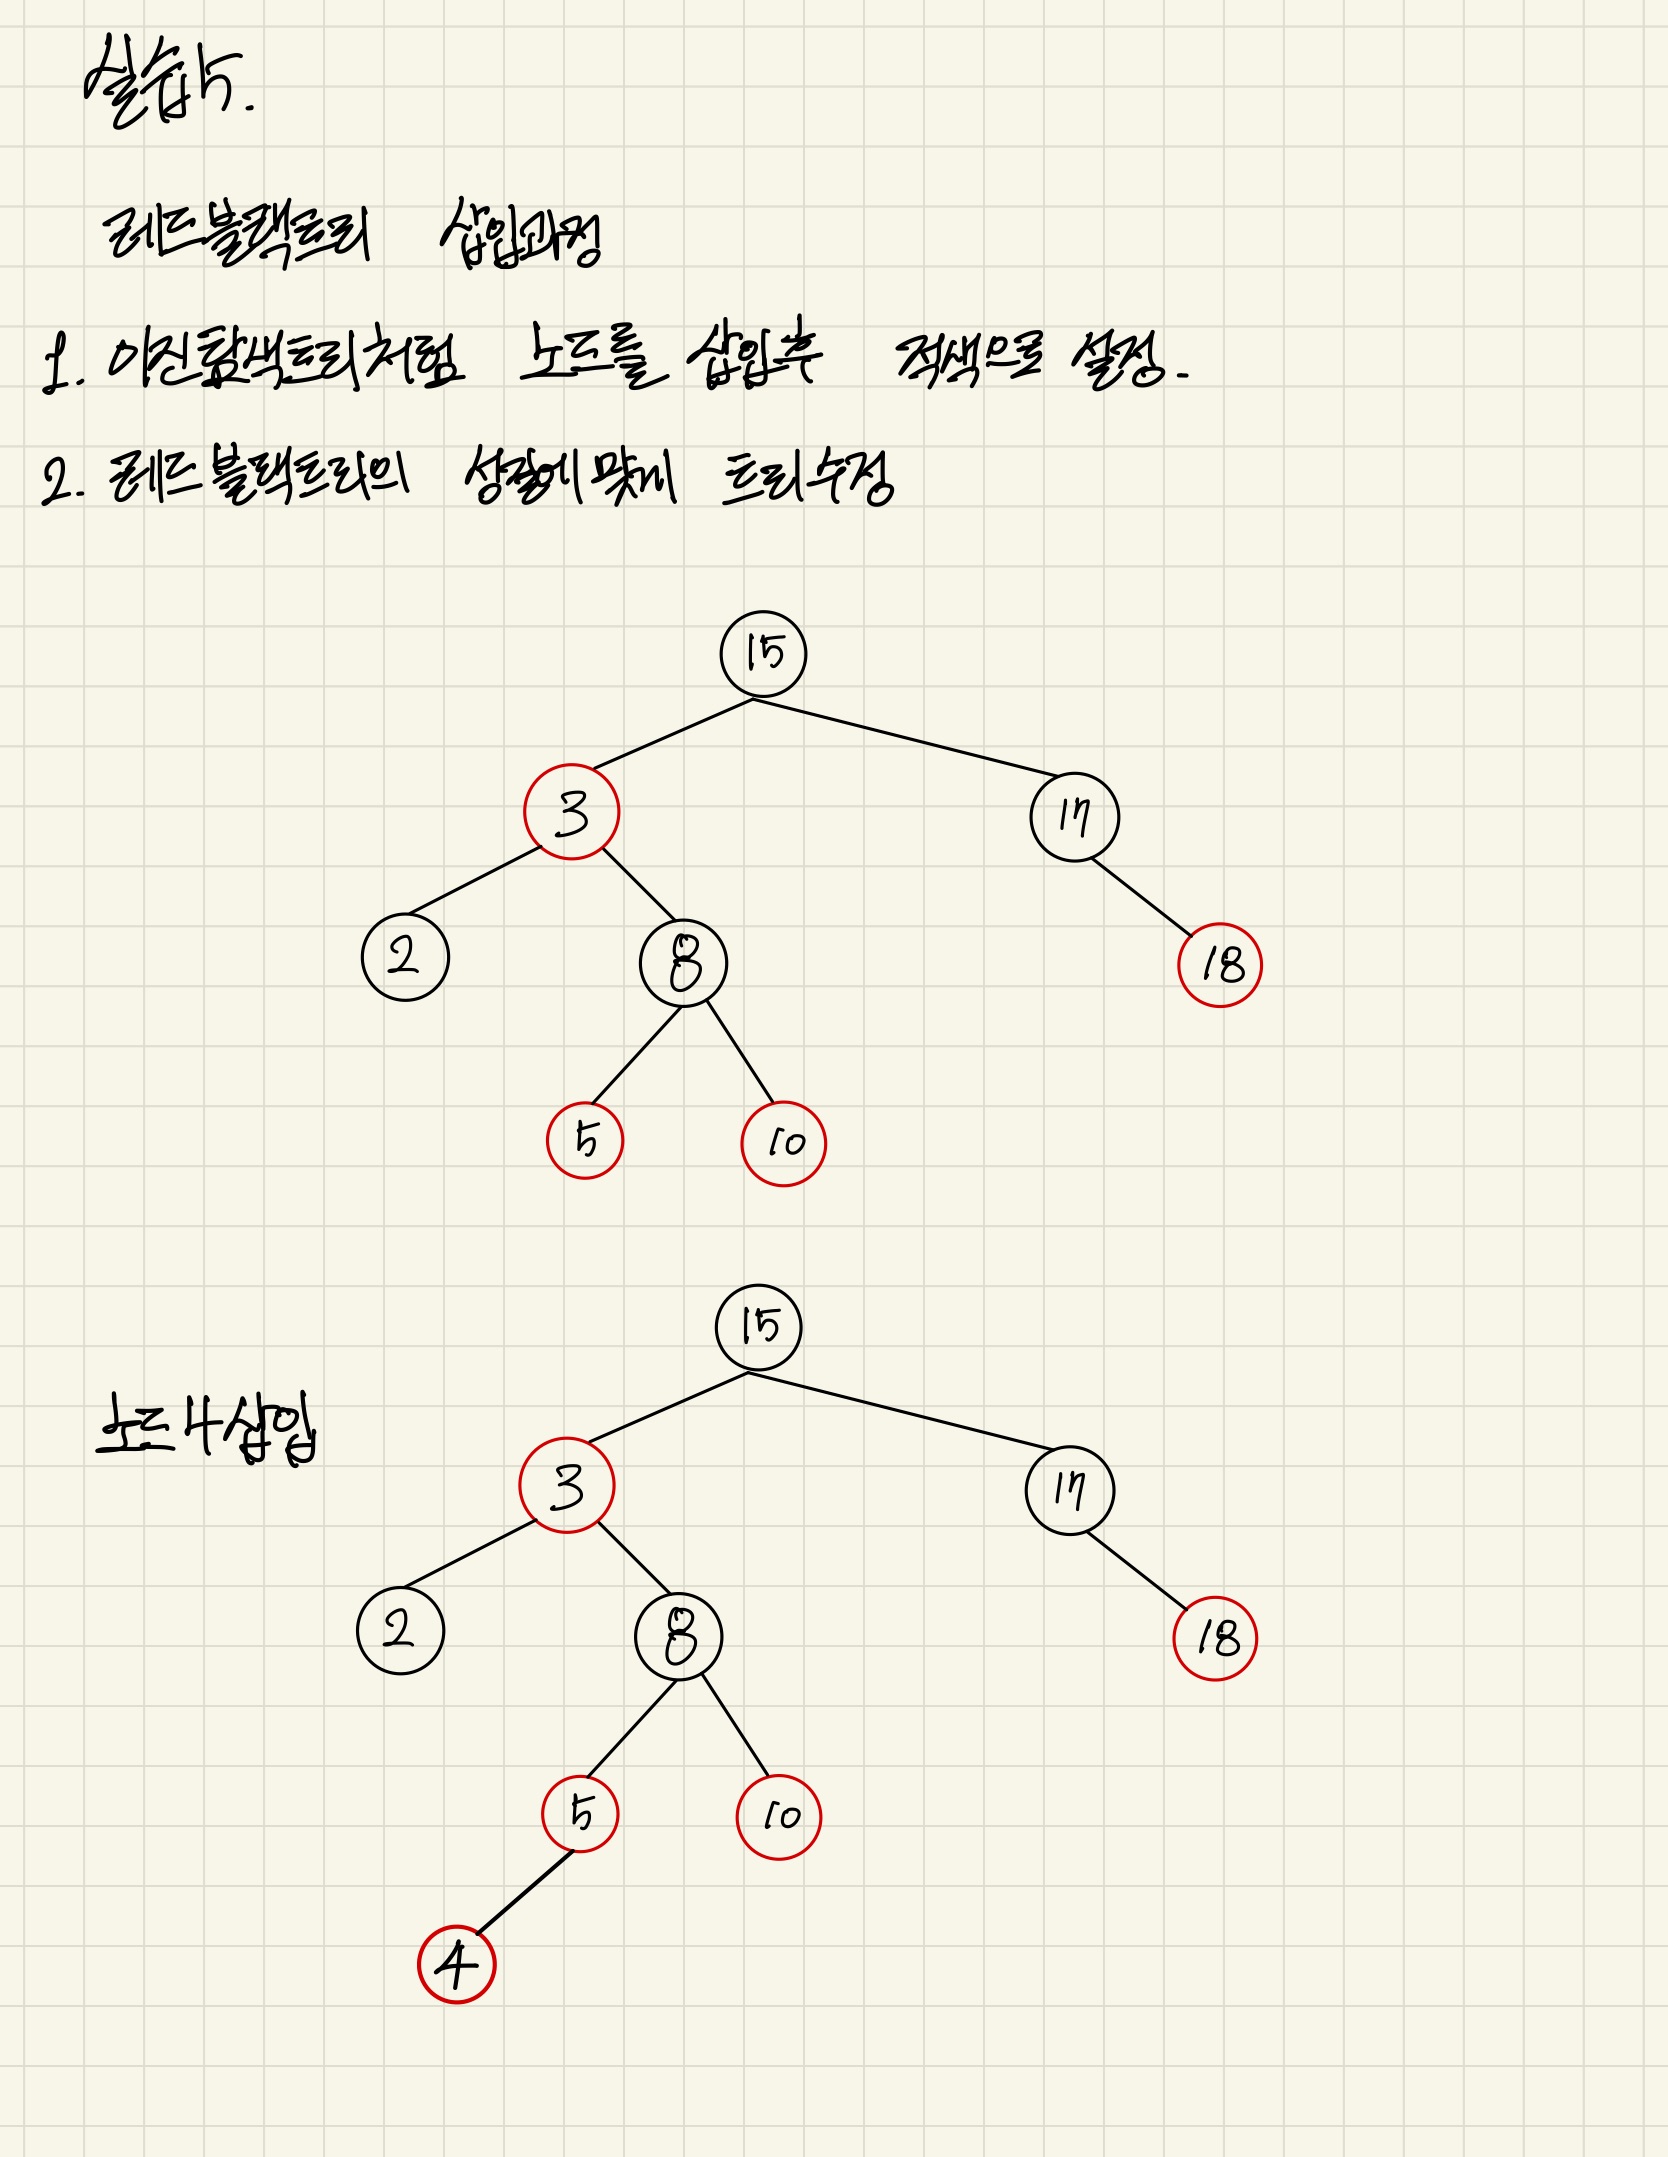 실습5.
레드블랙트리 삽입과정
1. 이진탐색트리처럼 노드를 삽입후 적색으로 설정.
2. 레드블랙트리의 성질에 맞게 트리수정
15
3 17
2 8 18
5 10
15
노드 4 삽입
3 17
2 8 18
5 10
4